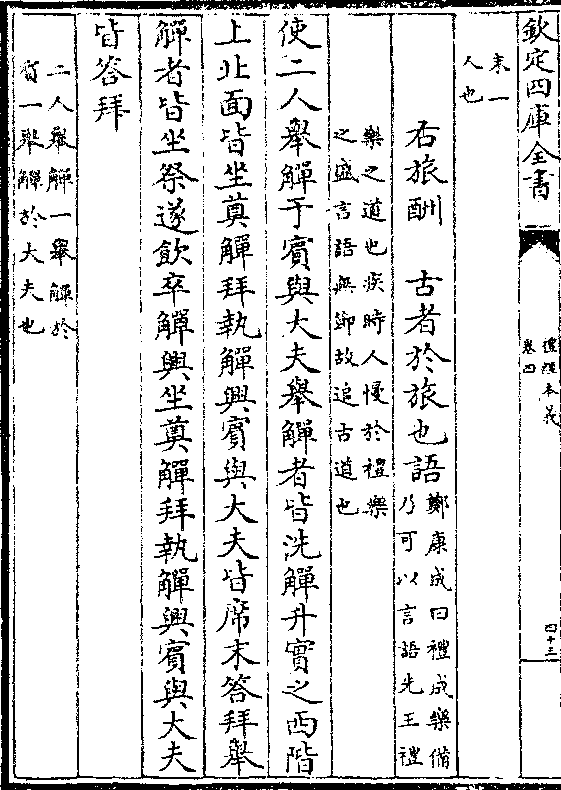 欽定四庫全書
禮經本義
卷四
四十三
末一
人也
右旅酬　古者於旅也語
鄭康成曰禮成樂備
乃可以言語先王禮
樂之道也疾時人慢於禮樂
之盛言語無節故追古道也
使二人舉觶于賓與大夫舉觶者皆洗觶升實之西階
上北面皆坐奠觶拜執觶興賓與大夫皆席末答拜舉
觶者皆坐祭遂飲卒觶興坐奠觶拜執觶興賓與大夫
皆答拜
二人舉觶一舉觶於
賓一舉觶於大夫也